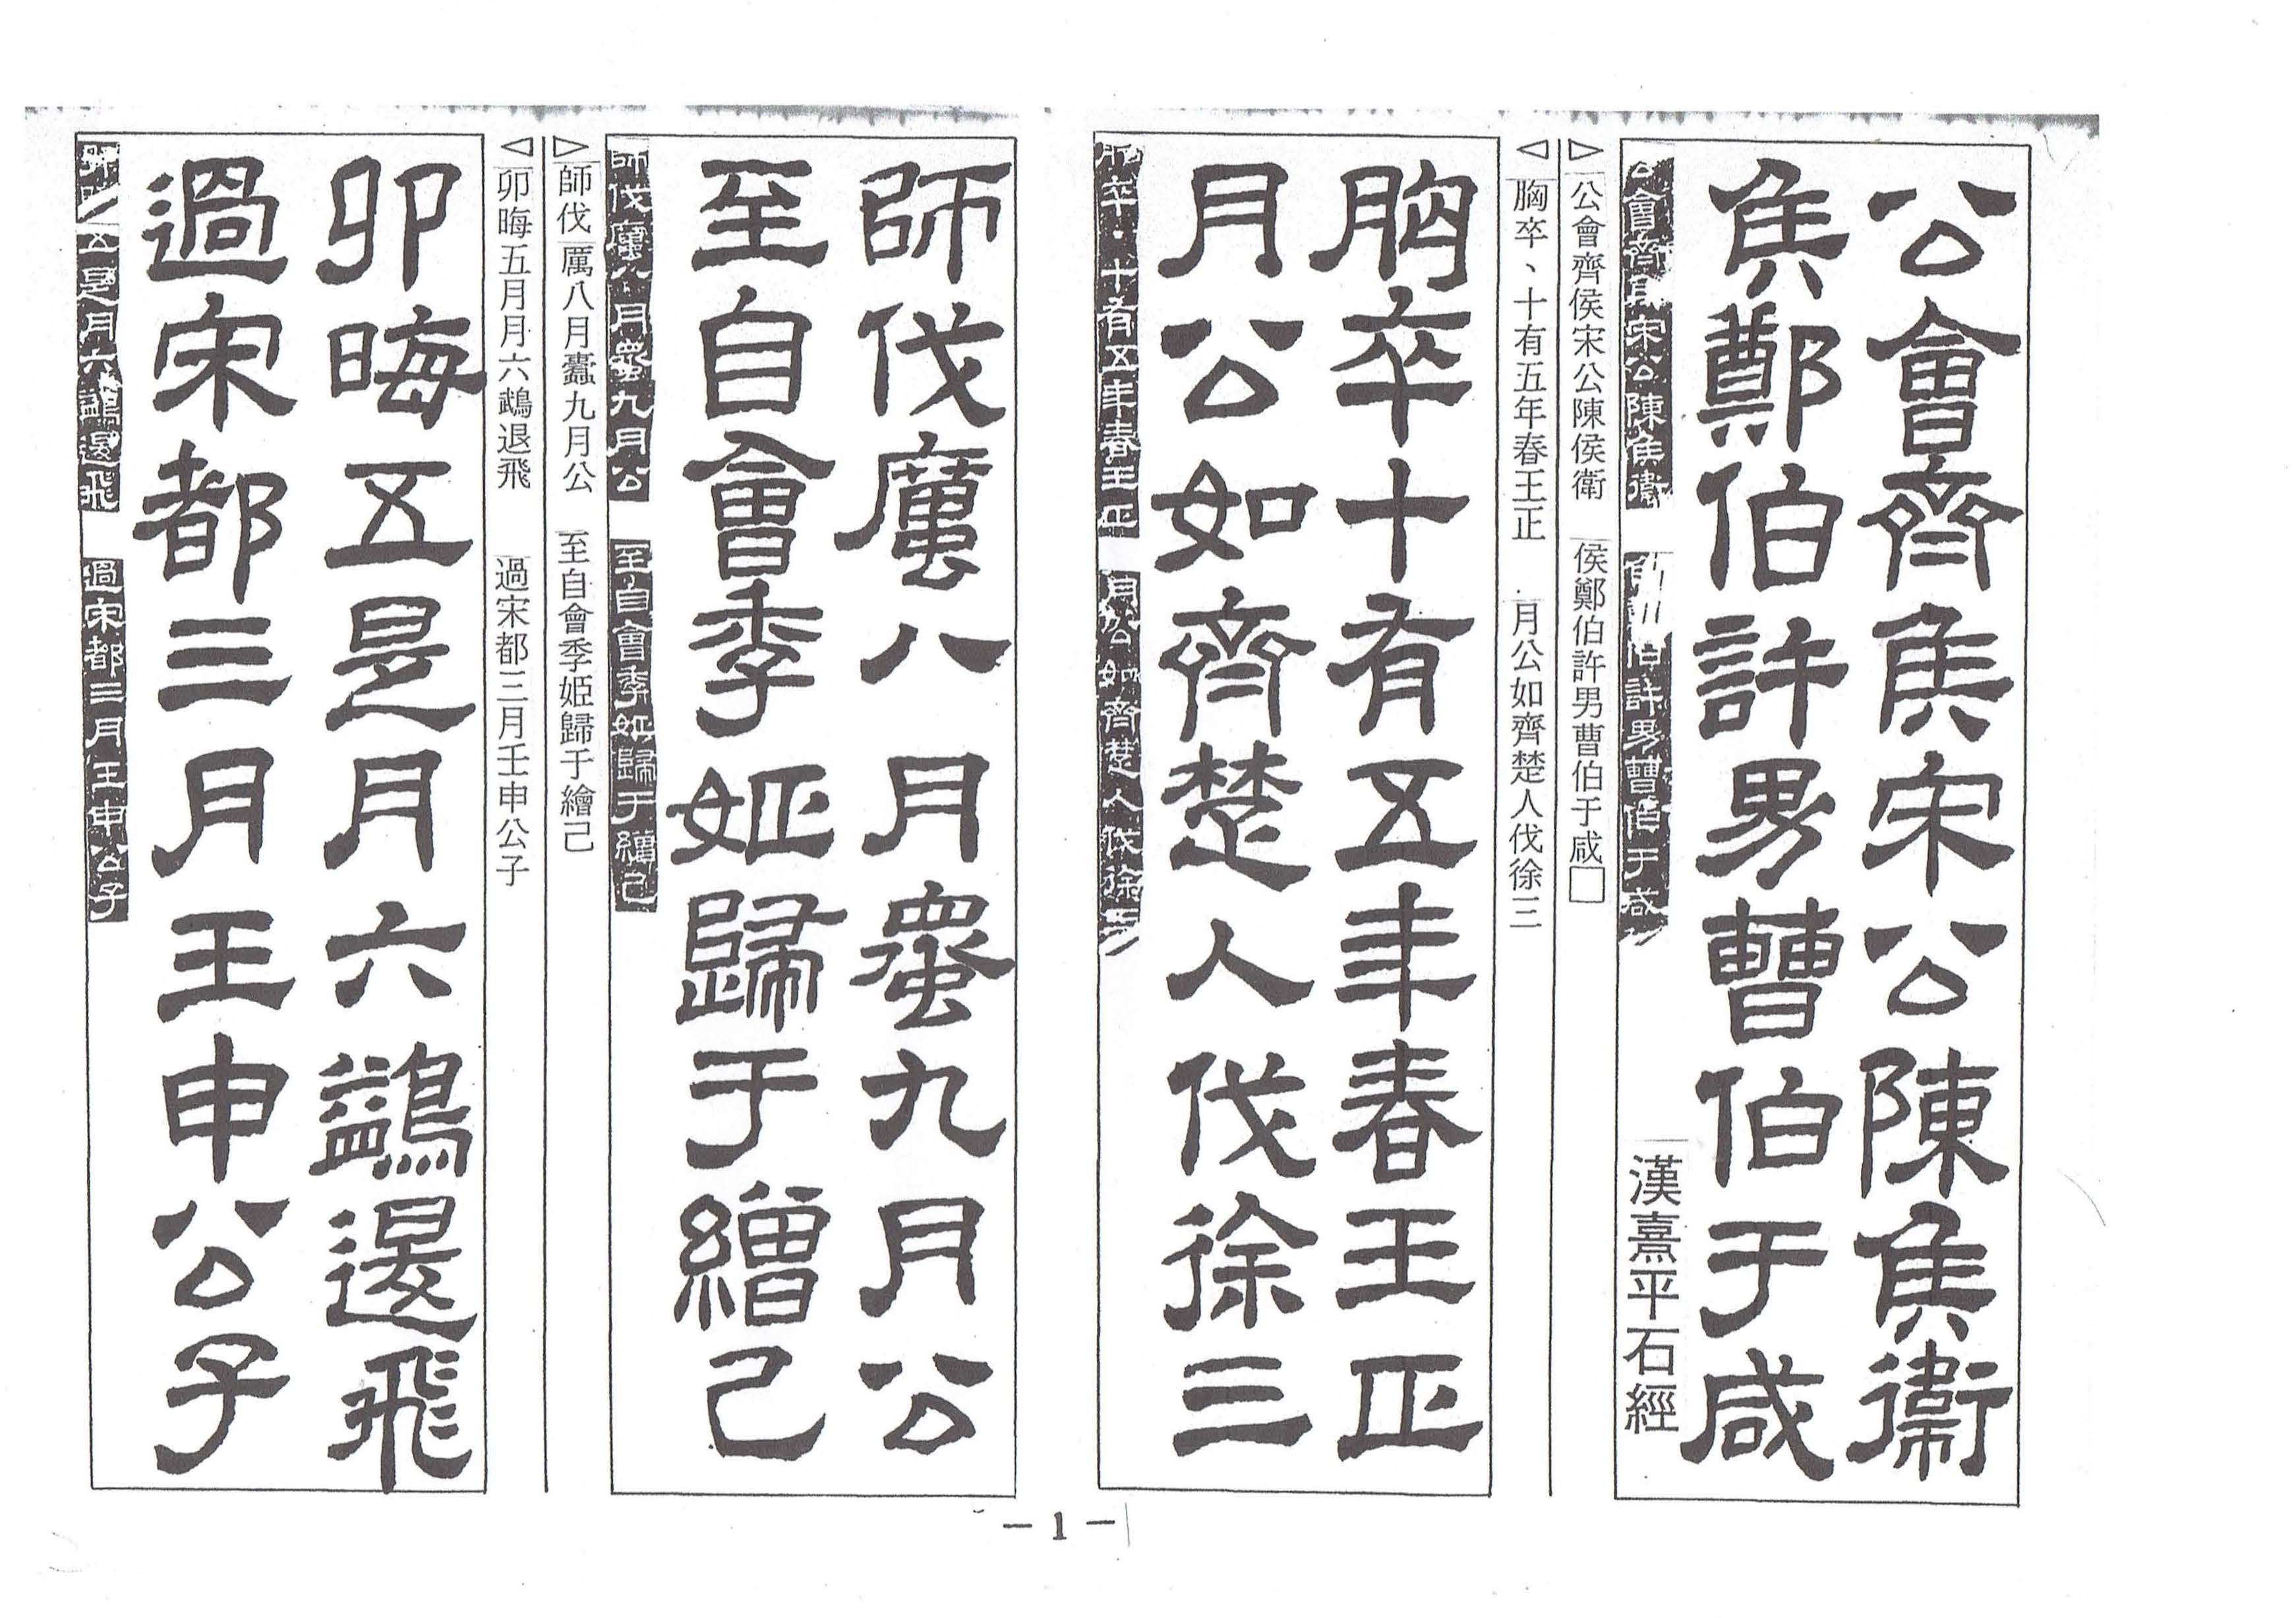 公會齊侯宋公陳侯衛
侯鄭伯許男曹伯于咸
公會齊侯宋公陳侯衛
侯鄭伯許男曹伯于咸
漢熹平石經
▷公會齊侯宋公陳侯衛 侯鄭伯許男曹伯于咸□
◁胸卒、十有五年春王正 月公如齊楚人伐徐三
朐卒十有五年春王正
月公如齊楚人伐徐三
卒·十有五年春王正
月公如齊楚人伐徐三
師伐厲八月蝝九月公
至自會季姬歸于繒己
師伐厲八月蝝九月公
至自會季姬歸于繒己
▷師伐厲八月蠹九月公 至自會季姬歸于繪己
◁卯晦五月月六鷁退飛 過宋都三月壬申公子
卯晦五是月六鷁退飛
過宋都三月王申公子
卯晦 五是月六鷁退飛
過宋都三月王申公子
— 1 —